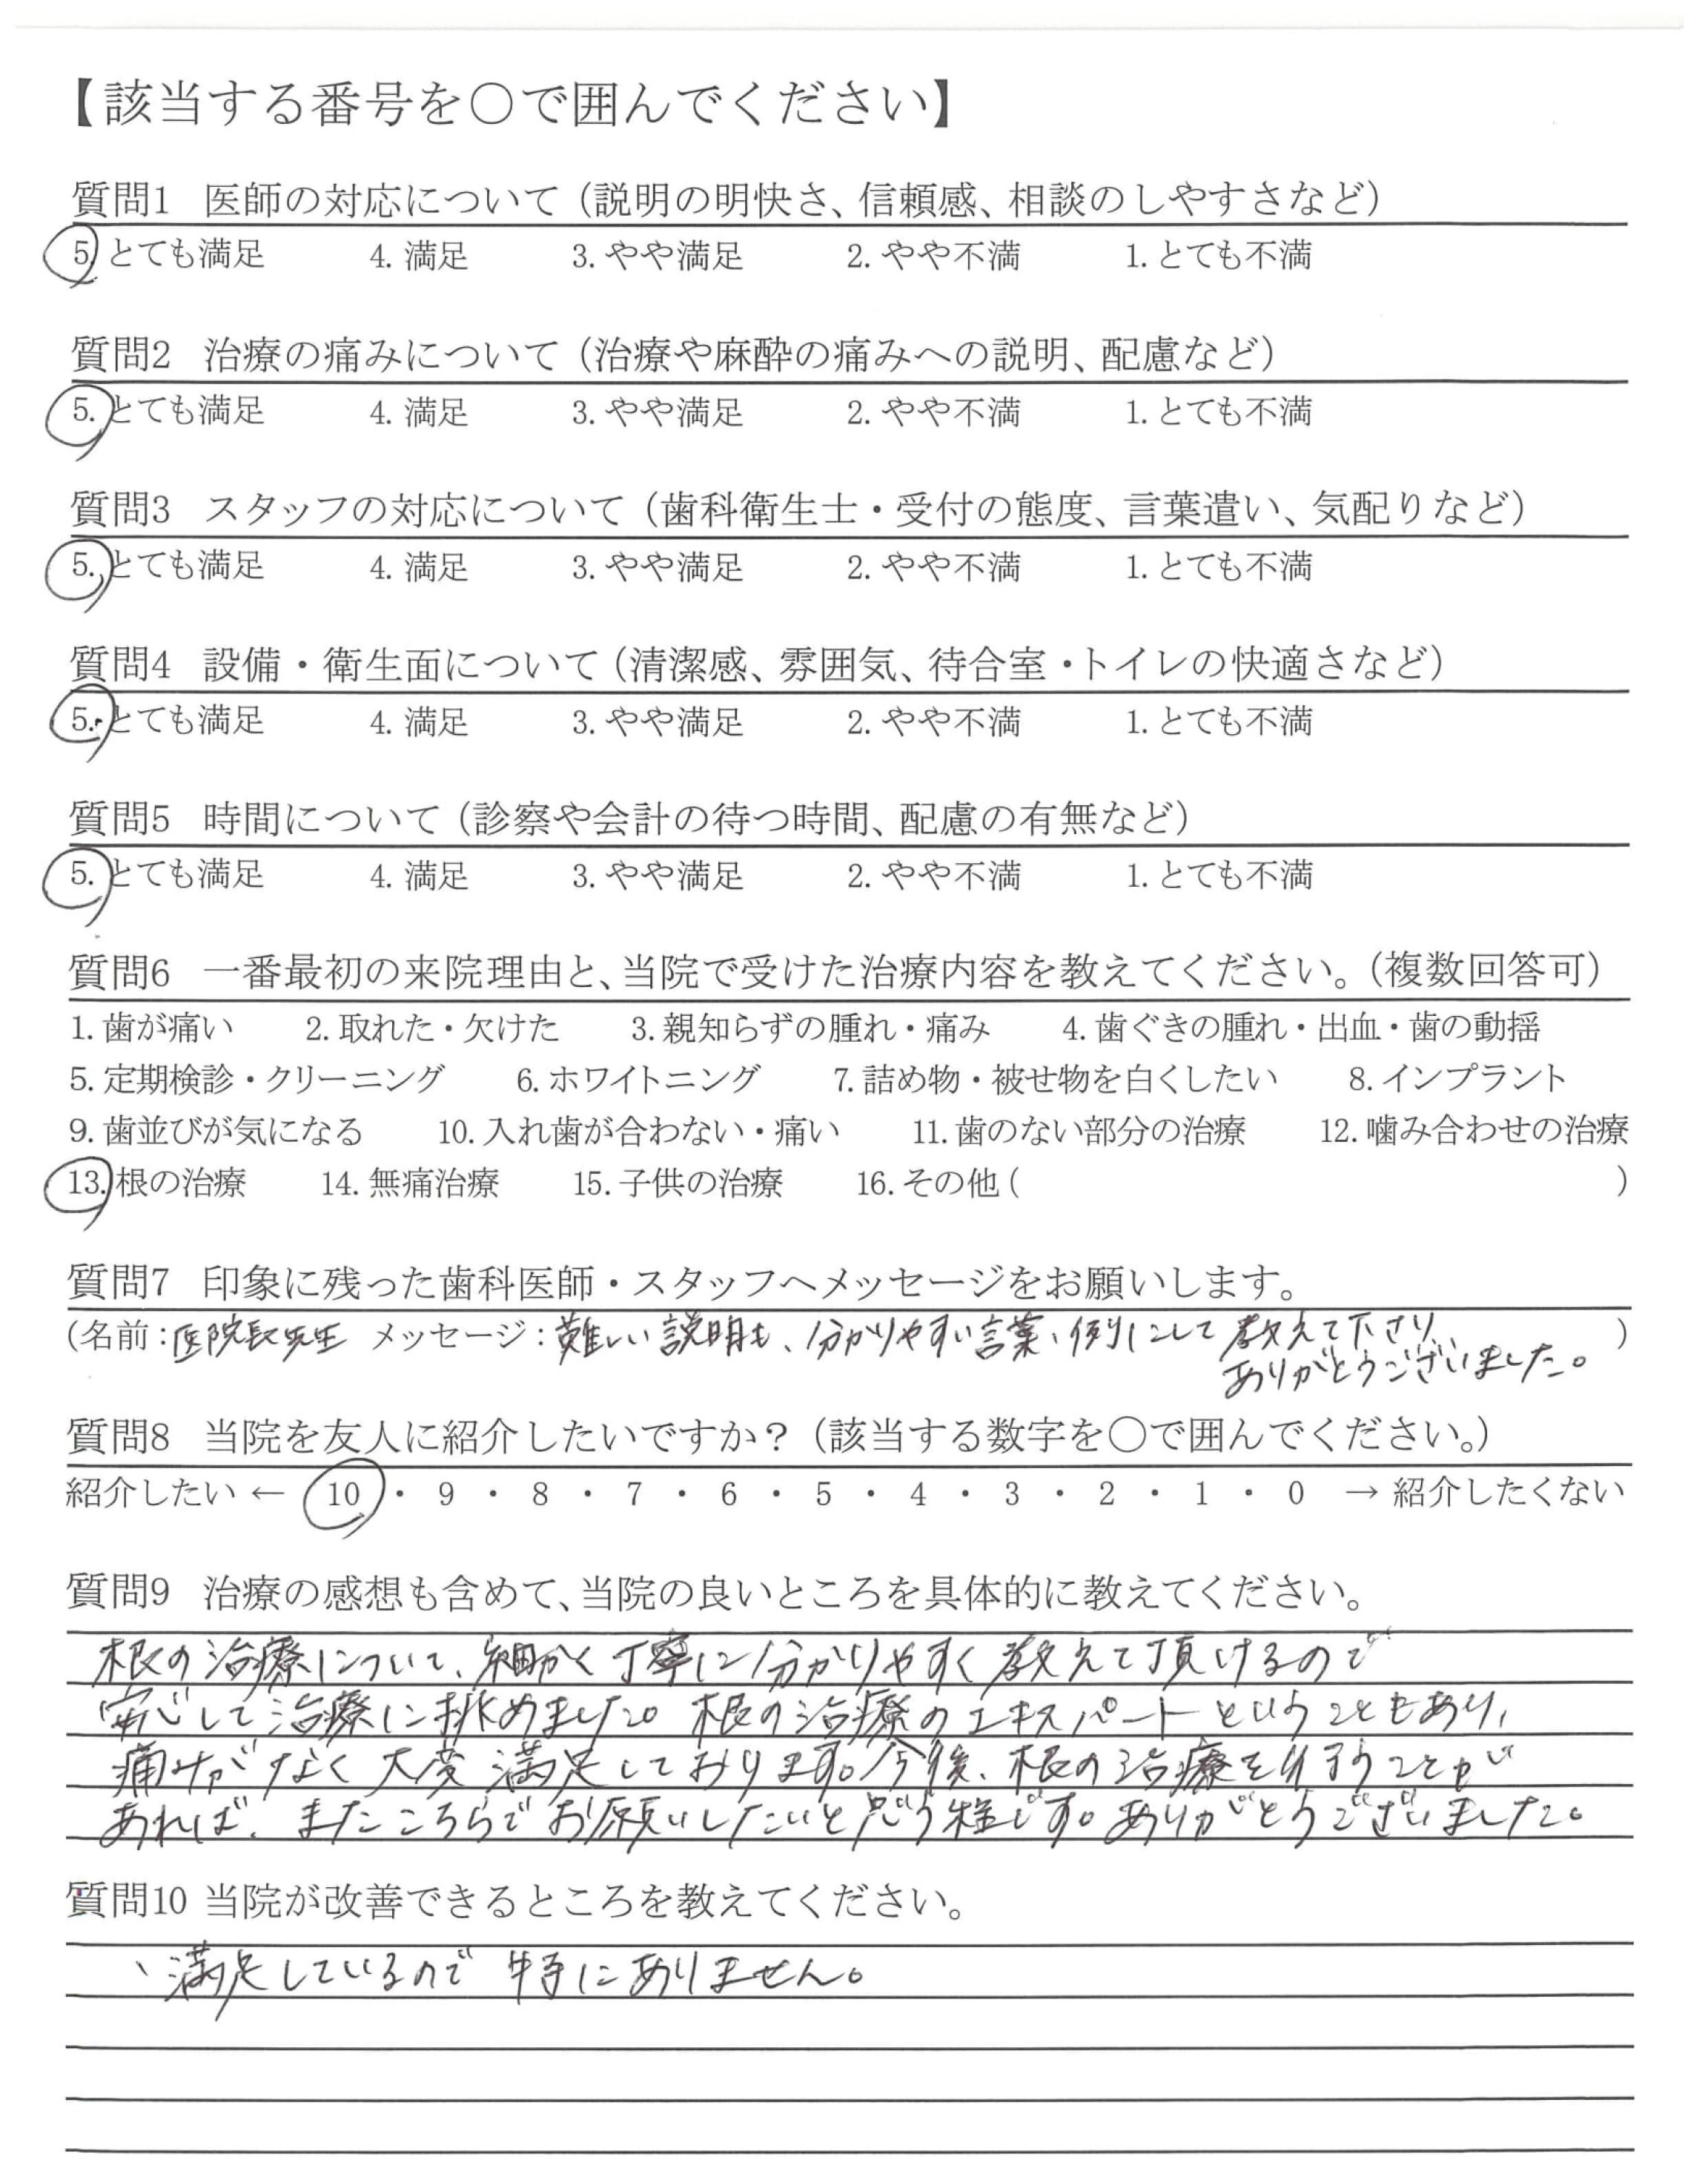 【該当する番号を〇で囲んでください】
質問1 医師の対応について（説明の明快さ、信頼感、相談のしやすさなど）
5. とても満足 4. 満足 3. やや満足 2. やや不満 1. とても不満
質問2 治療の痛みについて（治療や麻酔の痛みへの説明、配慮など）
5. とても満足 4. 満足 3. やや満足 2. やや不満 1. とても不満
質問3 スタッフの対応について（歯科衛生士・受付の態度、言葉遣い、気配りなど）
5. とても満足 4. 満足 3. やや満足 2. やや不満 1. とても不満
質問4 設備・衛生面について（清潔感、雰囲気、待合室・トイレの快適さなど）
5. とても満足 4. 満足 3. やや満足 2. やや不満 1. とても不満
質問5 時間について（診察や会計の待つ時間、配慮の有無など）
5. とても満足 4. 満足 3. やや満足 2. やや不満 1. とても不満
質問6 一番最初の来院理由と、当院で受けた治療内容を教えてください。（複数回答可）
1. 歯が痛い 2. 取れた・欠けた 3. 親知らずの腫れ・痛み 4. 歯ぐきの腫れ・出血・歯の動揺
5. 定期検診・クリーニング 6. ホワイトニング 7. 詰め物・被せ物を白くしたい 8. インプラント
9. 歯並びが気になる 10. 入れ歯が合わない・痛い 11. 歯のない部分の治療 12. 噛み合わせの治療
13. 根の治療 14. 無痛治療 15. 子供の治療 16. その他（ ）
質問7 印象に残った歯科医師・スタッフへメッセージをお願いします。
（名前：医院長先生 メッセージ：難しい説明も、分かりやすい言葉、例にして教えて下さり、 ）
ありがとうございました。
質問8 当院を友人に紹介したいですか？（該当する数字を〇で囲んでください。）
紹介したい ← 10 ・ 9 ・ 8 ・ 7 ・ 6 ・ 5 ・ 4 ・ 3 ・ 2 ・ 1 ・ 0 → 紹介したくない
質問9 治療の感想も含めて、当院の良いところを具体的に教えてください。
根の治療について、細かく丁寧に分かりやすく教えて頂けるので
安心して治療に挑めました。根の治療のエキスパートということもあり、
痛みがなく大変満足しております。今後、根の治療を行うことが
あれば、またこちらでお願いしたいと思う程です。ありがとうございました。
質問10 当院が改善できるところを教えてください。
、満足しているので特にありません。